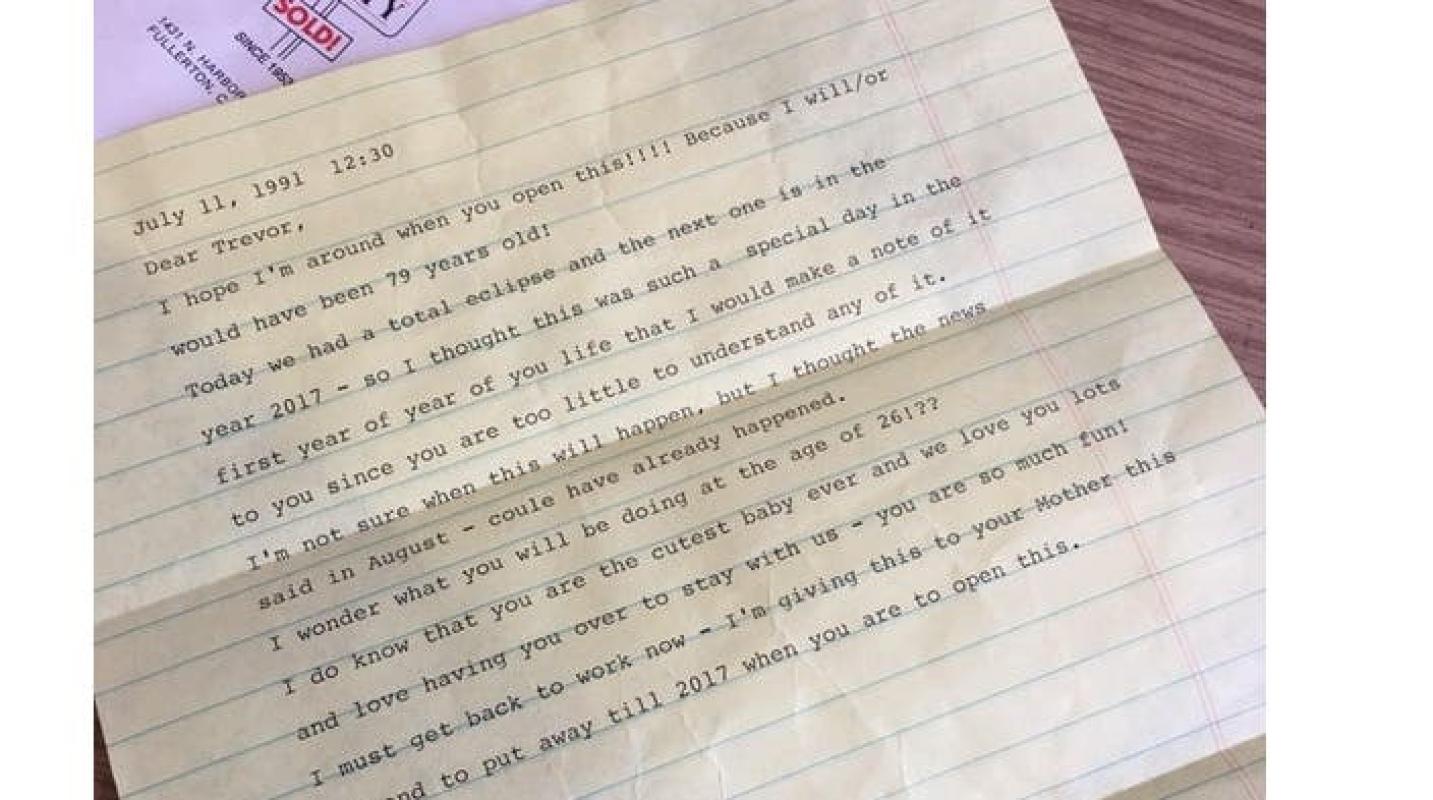 Y
SOLD!
SINCE 195
1431 N. HARBOR
FULLERTON, C
July 11, 1991 12:30
Dear Trevor,
I hope I'm around when you open this!!!! Because I will/or
would have been 79 years old!
Today we had a total eclipse and the next one is in the
year 2017 - so I thought this was such a special day in the
first year of year of you life that I would make a note of it
to you since you are too little to understand any of it.
I'm not sure when this will happen, but I thought the news
said in August - coule have already happened.
I wonder what you will be doing at the age of 26!??
I do know that you are the cutest baby ever and we love you lots
and love having you over to stay with us - you are so much fun!
I must get back to work now - I'm giving this to your Mother this
and to put away till 2017 when you are to open this.